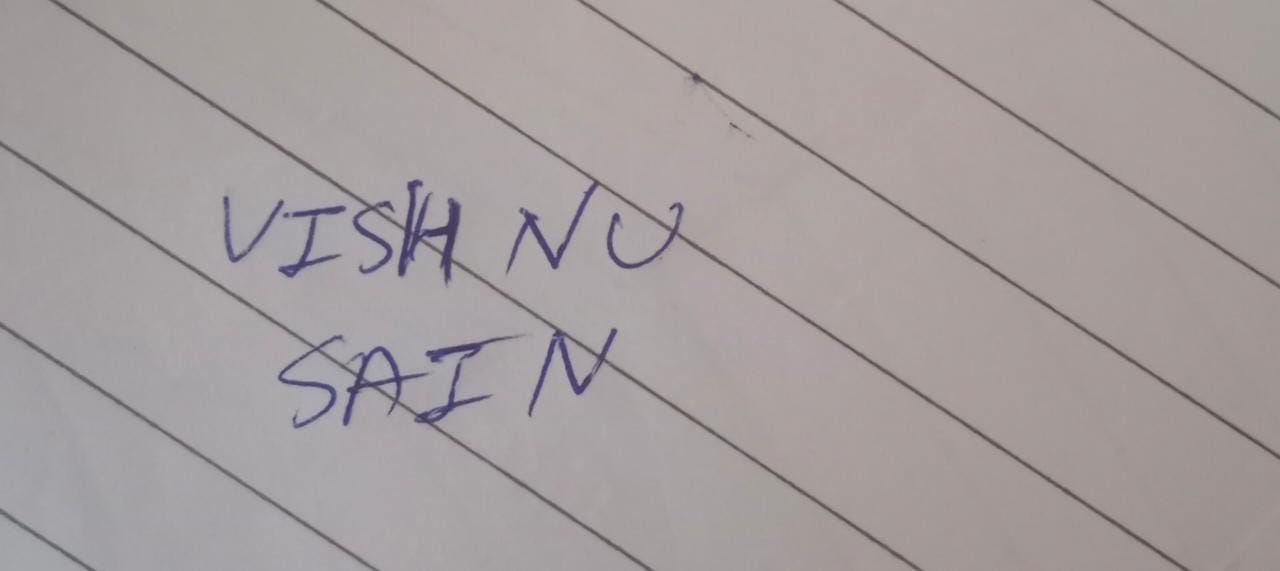 VISHNU
SAIN